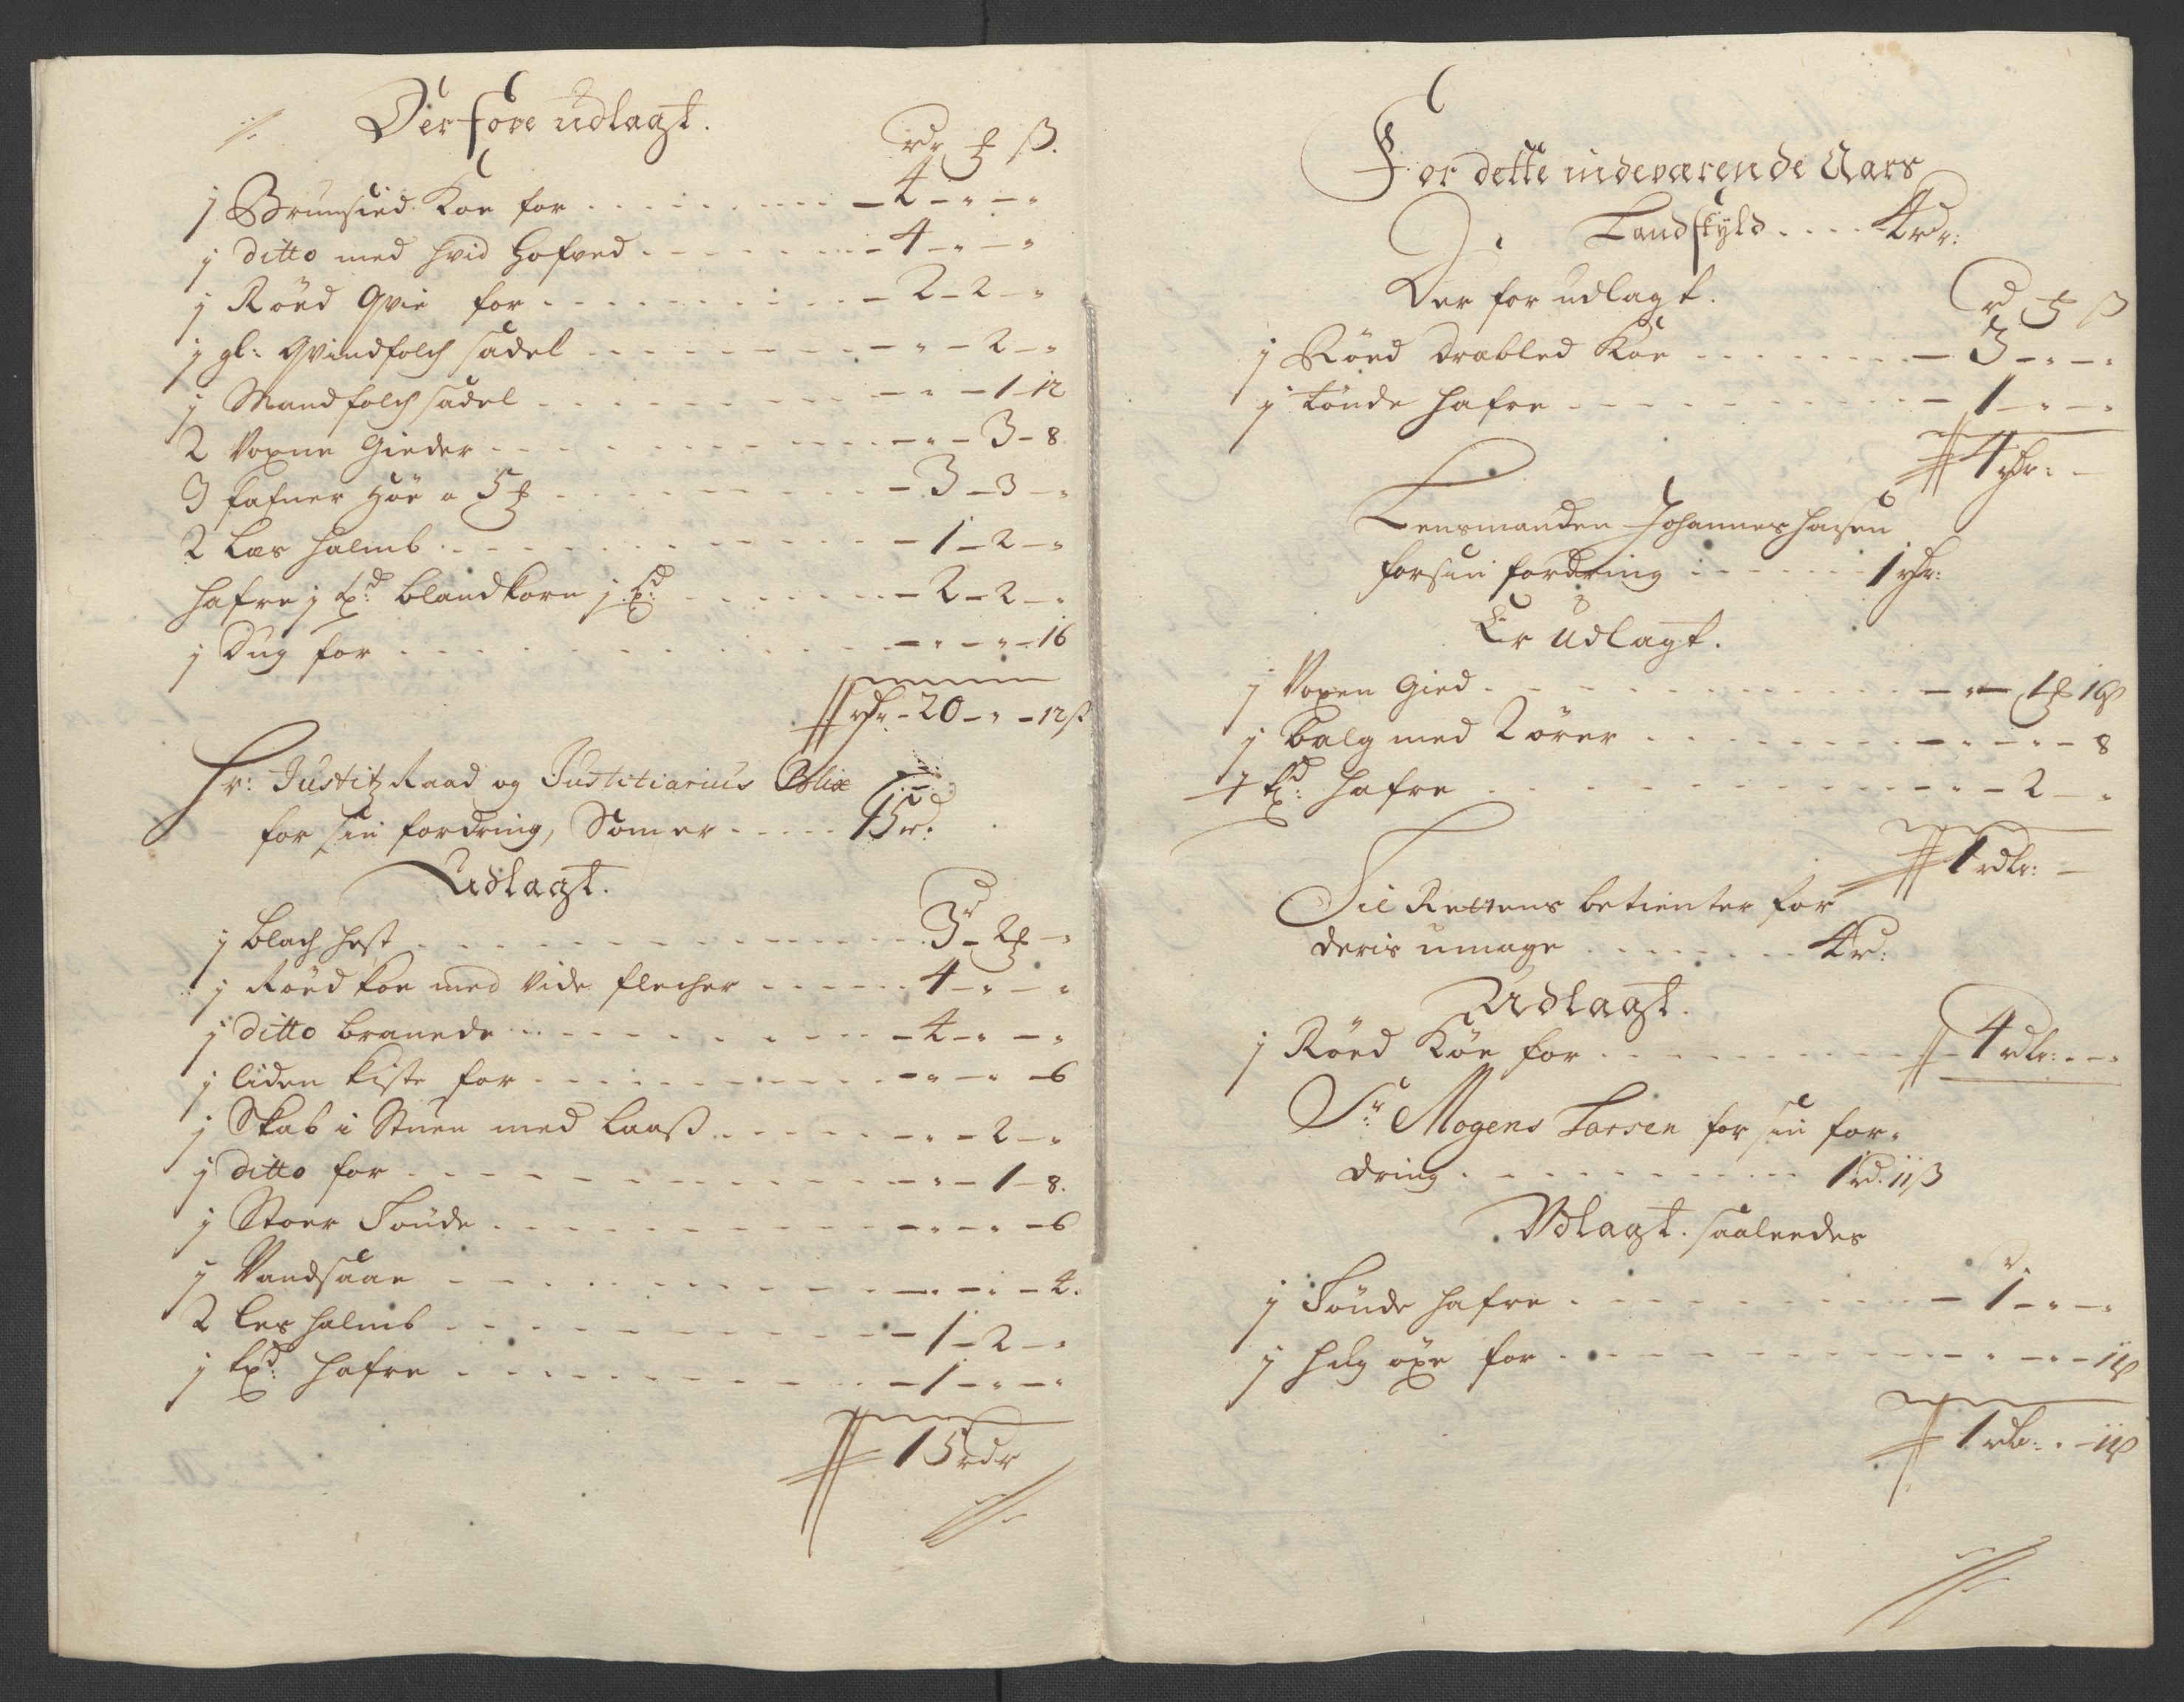 Der fore udlagt.
rdr ₻ ß.
1 Brunsied Koe for . . . . . . . . . – 4 – " – "
1 ditto med hvid Hofved . . . . . . . – 4 – " – "
1 Röed Qvie for . . . . . . . . . – 2 – 2 – "
1 gl: Qvindfolch sadel . . . . . . . – " – 2 – "
1 Mandfolch sadel . . . . . . . . – " – 1 – 12
2 Voxne Gieder . . . . . . . . . – " – 3 – 8.
3 fafner Höe a 5 ₻ . . . . . . . . – 3 – 3 – "
2 Læs halmb . . . . . . . . . . – 1 – 2 – "
hafre j td: blandkorn j td: . . . . . . – 2 – 2 – "
1 Dug for . . . . . . . . . . . – " – " – 16
rdr – 20 – " – 12 ß
Hr: Justitz Raad og Justitiarius
for sin fordring, Som er . . . . . 15 rd:
Udlagt.
1 blach hest . . . . . . . . . . . 3 r – 2 ₻ – "
1 Röed koe med vide flecher . . . . . . 4 – " – "
1 ditto branede . . . . . . . . . – 4 – " – "
1 liden kiste for . . . . . . . . . – " – " – 6
1 Skab i Stuen med Laaß . . . . . . – " – 2 – "
1 ditto for . . . . . . . . . . . – " – 1 – 8.
1 Stoer Tönde . . . . . . . . . – " – " – 6
1 Vandsaae . . . . . . . . . . – " – " – 4.
2 Les halmb . . . . . . . . . . – 1 – 2 – "
1 td: hafre . . . . . . . . . . – 1 – " – "
15 rdr
For dette indeværende Aars
Landskyld . . . . 4 rdr:
Der for udlagt.
rd ₻ ß
1 Röed drabled Koe . . . . . . . – 3 – " – "
1 tönde hafre . . . . . . . . . – 1 – " – "
4 rdr: –
Lensmanden Johannes hansen
for sin fordring . . . . . . 1 rdr:
Er Udlagt.
1 Voxen Gied . . . . . . . . . . – " – 1 ₻ 16 ß
1 balg med 2 örer . . . . . . . . – " – " – 8
1 td: hafre . . . . . . . . . . – " – 2 – "
1 rdlr: –
Til Rettens betienter for
deris umage . . . . . . . 4 rd:
Udlagt.
1 Röed Köe for . . . . . . . . . 4 rdlr: – "
Sr: Mogens Larsen for sin for-
dring . . . . . . . . . . 1 rd. 11 ß
Udlagt. saaleedes
r.
1 Tönde hafre . . . . . . . . . – 1 – " – "
1 öxe for . . . . . . . . . . – " – " – 11 ß
1 rdlr: " – 11 ß